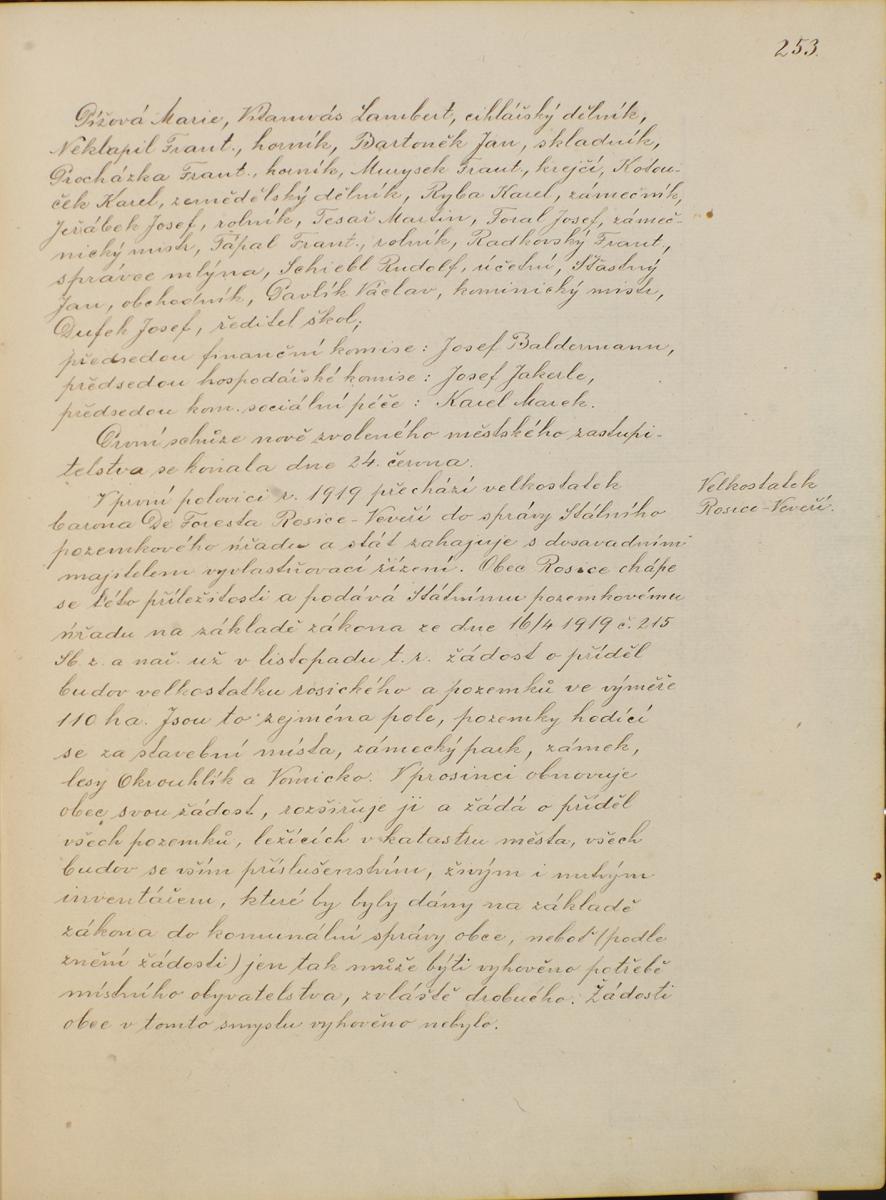 253.
Pížová Marie, Vítamvás Lambert, cihlářský dělník,
Neklapil Frant., horník, Bartoněk Jan, skladník,
Procházka Frant., horník, Musysek Frant., krejčí, Kotou-
ček Karel, zemědělský dělník, Ryba Karel, zámečník,
Jeřábek Josef, rolník, Tesař Martin, Foral Josef, zámeč-
nický mistr, Fápal Frant., rolník, Radkovský Frant.,
správce mlýna, Schiebl Rudolf, účetní, Šťastný
Jan, obchodník, Pavlík Václav, kominický mistr,
Dufek Josef, ředitel škol;
předsedou finanční komise: Josef Baldermann,
předsedou hospodářské komise: Josef Jakerle,
předsedou kom. sociální péče: Karel Marek.
První schůze nově zvoleného městského zastupi-
telstva se konala dne 24. června.
V první polovici r. 1919 přechází velkostatek
barona De Foresta Rosice-Veveří do správy Státního
pozemkového úřadu a stát zahajuje s dosavadním
majitelem vyvlastňovací řízení. Obec Rosice chápe
se této příležitosti a podává Státnímu pozemkovému
úřadu na základě zákona ze dne 16/4 1919 č. 215
Sb. z. a nař. už v listopadu t. r. žádost o příděl
budov velkostatku rosického a pozemků ve výměře
110 ha. Jsou to zejména pole, pozemky hodící
se za stavební místa, zámecký park, zámek,
lesy Okrouhlík a Vomicko. V prosinci obnovuje
obec svou žádost, rozšiřuje ji a žádá o příděl
všech pozemků, ležících v katastru města, všech
budov se vším příslušenstvím, živým i mrtvým
inventářem, které by byly dány na základě
zákona do komunální správy obce, neboť (podle
znění žádosti) jen tak může býti vyhověno potřebě
místního obyvatelstva, zvláště drobného. Žádosti
obce v tomto smyslu vyhověno nebylo.
Velkostatek
Rosice-Veveří.